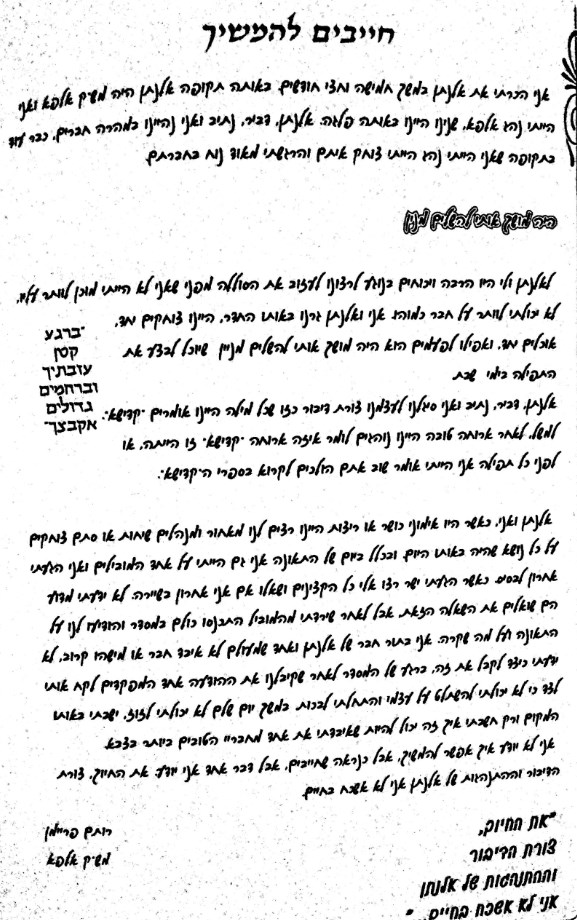 חייבים להמשיך
אני הכרתי את אלנתן במשך חמישה וחצי חודשים. באותה תקופה אלנתן היה מש״ק אלפא ואני
הייתי נהג אלפא, שנינו היינו באותה פלגה. אלנתן, דביר, נתיב ואני נהיינו במהרה חברים, כבר עוד
בתקופה שאני הייתי נהג הייתי צוחק איתם והרגשתי מאוד נוח בחברתם.
היה מושך אותי להשלים מניין
לאלנתן ולי היו הרבה ויכוחים בנוגע לרצונו לעזוב את הסוללה מפני שאני לא הייתי מוכן לוותר עליו,
לא יכולתי לוותר על חבר כמוהו. אני ואלנתן גרנו באותו החדר, היינו צוחקים יחד,
אוכלים יחד, ואפילו לפעמים הוא היה מושך אותי להשלים מניין שיוכל לבצע את
התפילה בימי שבת.
אלנתן, דביר, נתיב ואני סיגלנו לעצמנו צורת דיבור כזו שכל מילה היינו אומרים ״קדישא״.
למשל, לאחר ארוחה טובה היינו נוהגים לומר איזה ארוחה ״קדישא״ זו הייתה, או
לפני כל תפילה אני הייתי אומר שוב אתם הולכים לקרוא בספרי ה״קדישא״.
״ברגע
קטן
עזבתיך
וברחמים
גדולים
אקבצך״
אלנתן ואני, כאשר היו אימוני כושר או ריצות היינו רצים לנו מאחור ומנהלים שיחות או סתם צוחקים
על כל נושא שהיה באותו היום. ובכלל ביום של התאונה אני גם הייתי על אחד המובילים ואני הגעתי
אחרון לבסיס. כאשר הגעתי ישר רצו אלי כל הקצינים ושאלו אם אני אחרון בשיירה. לא ידעתי מדוע
הם שואלים את השאלה הזאת, אבל לאחר שירדתי מהמוביל התכנסו כולם במסדר והודיעו לנו על
התאונה ועל מה שקרה. אני בתור חבר של אלנתן ואחד שמעולם לא איבד חבר או מישהו קרוב, לא
ידעתי כיצד לקבל את זה, ברגע של המסדר לאחר שקיבלנו את ההודעה אחד המפקדים לקח אותי
לצד כי לא יכולתי להשתלט על עצמי והתחלתי לבכות. במשך יום שלם לא יכולתי לזוז, ישבתי באותו
המקום ורק חשבתי איך זה יכול להיות שאיבדתי את אחד מחבריי הטובים ביותר בצבא.
אני לא יודע איך אפשר להמשיך, אבל כנראה שחייבים, אבל דבר אחד אני יודע: את החיוך, צורת
הדיבור וההתנהגות של אלנתן אני לא אשכח בחיים.
רותם פריימן
מש״ק אלפא
״את החיוך,
צורת הדיבור
וההתנהגות של אלנתן
אני לא אשכח בחיים...״